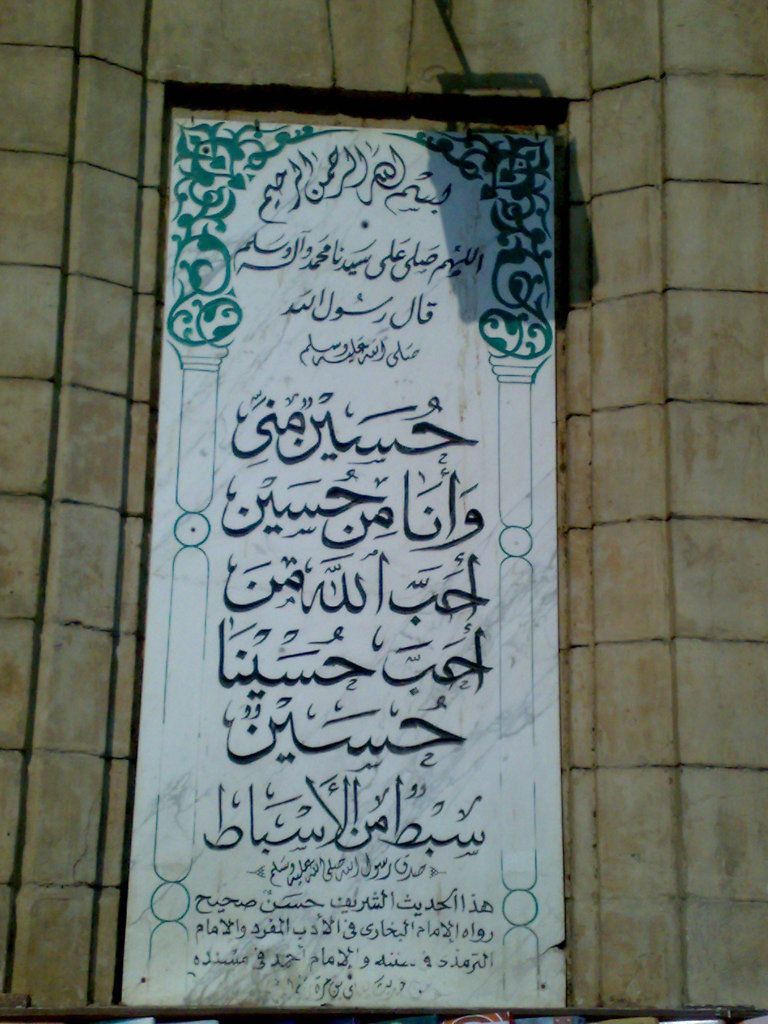 بسم الله الرحمن الرحيم
اللهم صلى على سيدنا محمد وآله وسلم
قال رسول الله
صلى الله عليه وسلم
حُسَيْنٌ مِنِّي
وَأَنَا مِن حُسَيْن
أَحَبَّ اللَّهُ مَنْ
أَحَبَّ حُسَيْنًا
حُسَيْنٌ
سِبْطٌ مِنَ الأَسْبَاط
صدق رسول الله صلى الله عليه وسلم
هذا الحديث الشريف حسن صحيح
رواه الإمام البخارى فى الأدب المفرد والامام
الترمذى فى سننه والإمام أحمد فى مسنده